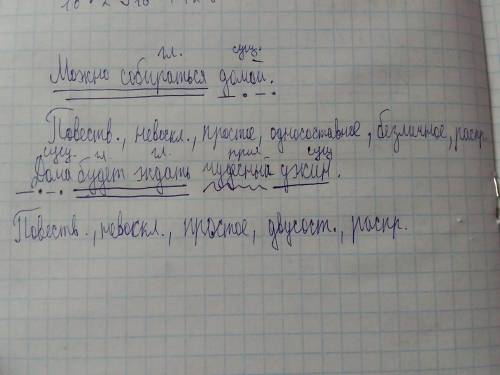 гл. сущ.
Можно собираться домой.
Повеств., невоскл., простое, односоставное, безличное, распр.
сущ. гл. гл. прил сущ
Дома будет ждать чудесный джин.
Повеств., невоскл., простое, двусост., распр.